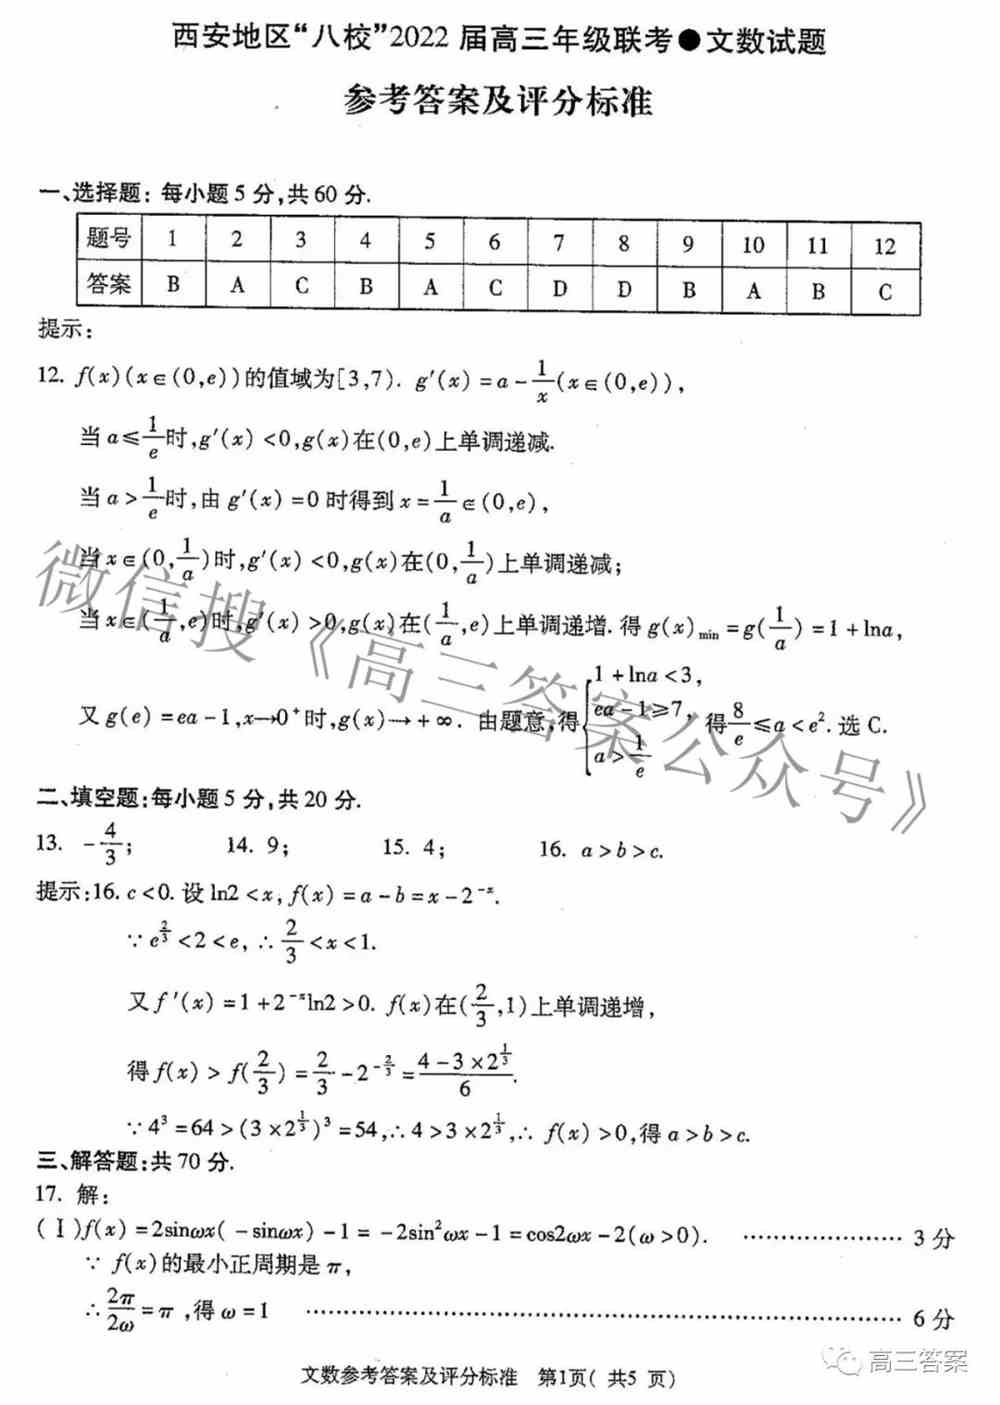 西安地区“八校”2022届高三年级联考●文数试题
参考答案及评分标准
一、选择题：每小题5分,共60分.
题号 1 2 3 4 5 6 7 8 9 10 11 12
答案 B A C B A C D D B A B C
提示：
12. f(x)(x∈(0,e))的值域为[3,7). g′(x)=a-1/x(x∈(0,e)),
当a≤1/e时,g′(x)<0,g(x)在(0,e)上单调递减.
当a>1/e时,由g′(x)=0时得到x=1/a∈(0,e),
当x∈(0,1/a)时,g′(x)<0,g(x)在(0,1/a)上单调递减;
当x∈(1/a,e)时,g′(x)>0,g(x)在(1/a,e)上单调递增.得g(x)min=g(1/a)=1+lna,
又g(e)=ea-1,x→0⁺时,g(x)→+∞. 由题意,得{1+lna<3, ea-1≥7, a>1/e 得8/e≤a<e².选C.
二、填空题:每小题5分,共20分.
13. -4/3; 14. 9; 15. 4; 16. a>b>c.
提示:16. c<0.设ln2<x, f(x)=a-b=x-2^(-x).
∵e^(2/3)<2<e, ∴2/3<x<1.
又f′(x)=1+2^(-x)ln2>0. f(x)在(2/3,1)上单调递增,
得f(x)>f(2/3)=2/3-2^(-2/3)=(4-3×2^(1/3))/6.
∵4³=64>(3×2^(1/3))³=54,∴4>3×2^(1/3),∴f(x)>0,得a>b>c.
三、解答题:共70分.
17. 解:
(Ⅰ)f(x)=2sinωx(-sinωx)-1=-2sin²ωx-1=cos2ωx-2(ω>0). …………………… 3分
∵ f(x)的最小正周期是π,
∴2π/2ω=π,得ω=1 …………………………………………………… 6分
文数参考答案及评分标准 第1页( 共5 页)
微信搜《高三答案公众号》
高三答案